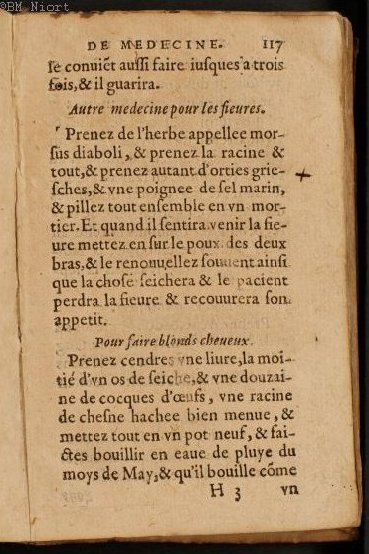 ©BM Niort
DE MEDECINE. 117
se conuiẽt aussi faire iusques a trois
fois, & il guarira.
Autre medecine pour les fieures.
Prenez de l'herbe appellee mor-
sus diaboli, & prenez la racine &
tout, & prenez autant d'orties grie-
sches, & vne poignee de sel marin,
& pillez tout ensemble en vn mor-
tier. Et quand il sentira venir la fie-
ure mettez en sur le poux des deux
bras, & le renouuellez souuent ainsi
que la chose seichera & le pacient
perdra la fieure & recouurera son
appetit.
Pour faire blonds cheueux.
Prenez cendres vne liure, la moi-
tié d'vn os de seiche, & vne douzai-
ne de cocques d'œufs, vne racine
de chesne hachee bien menue, &
mettez tout en vn pot neuf, & fai-
ctes bouillir en eaue de pluye du
moys de May, & qu'il bouille cõme
H 3 vn